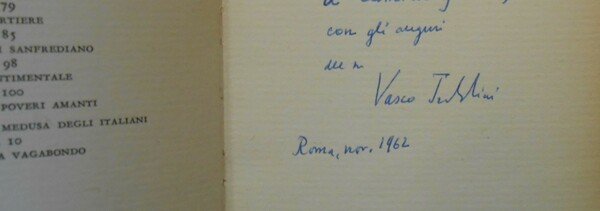 79
RTIERE
85
I SANFREDIANO
98
NTIMENTALE
100
POVERI AMANTI
MEDUSA DEGLI ITALIANI
10
A VAGABONDO
con gli auguri
Vasco Pratolini
Roma, nov. 1962